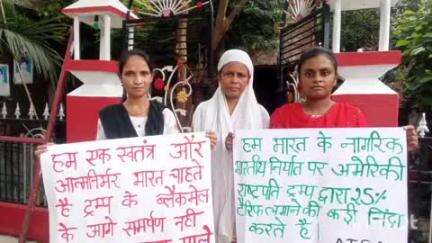 हम एक स्वतंत्र और
आत्मनिर्भर भारत चाहते
है ट्रम्प के ब्लैकमेल
के आगे समर्पण नहीं
हम भारत के नागरिक
भारतीय निर्यात पर अमेरिकी
राष्ट्रपति ट्रम्प द्वारा 25%
टैरिफ लगाने की कड़ी निंदा
करते है